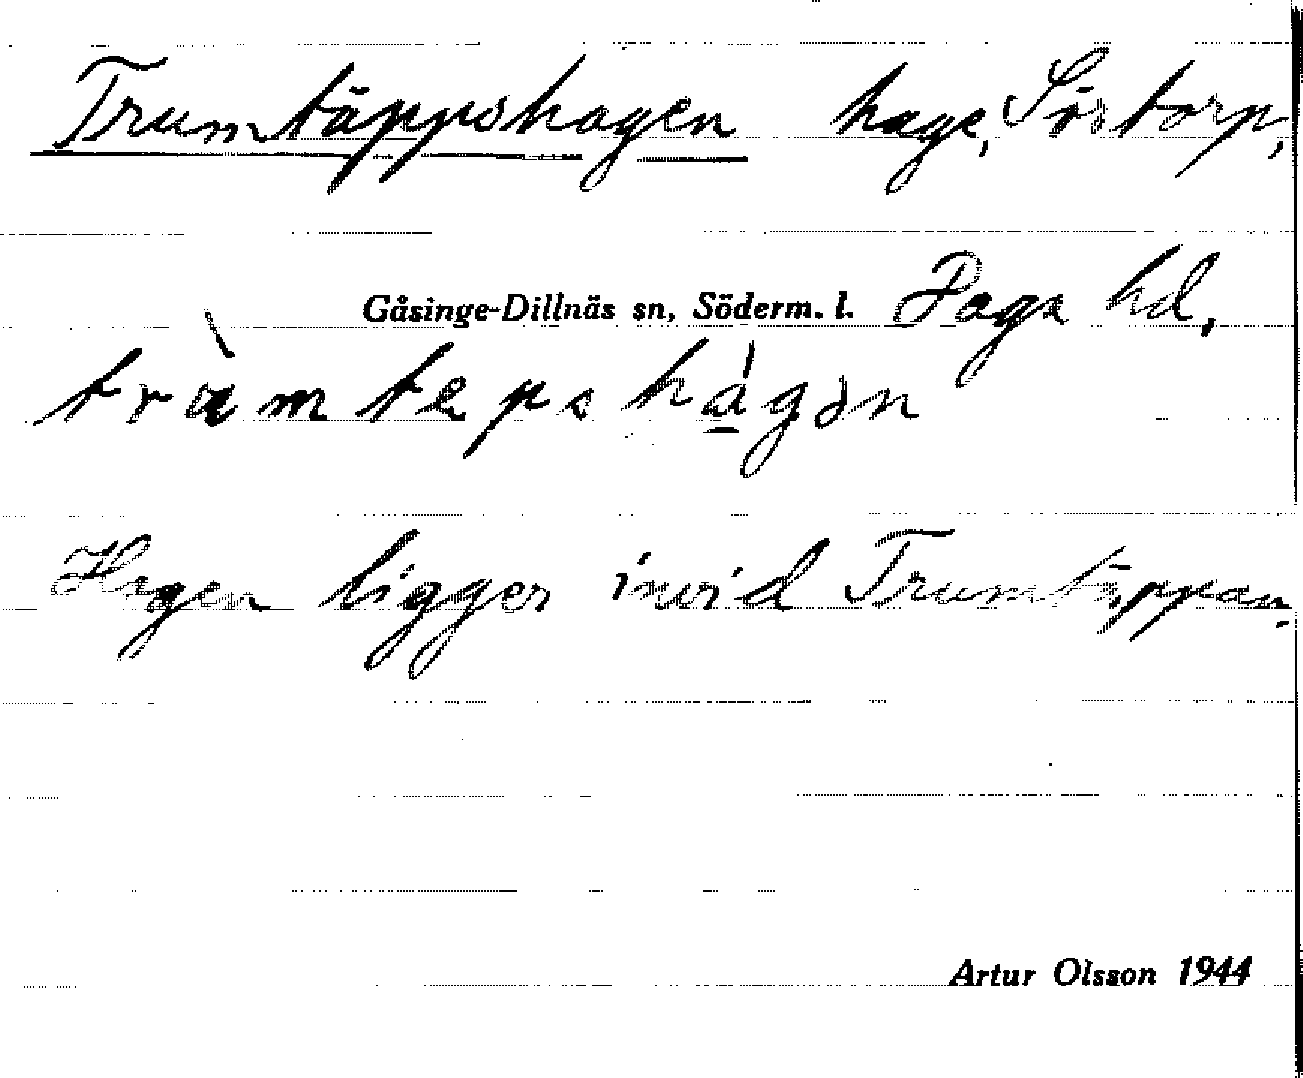 Trumtäppshagen hage, Sörtorp,
Gåsinge-Dillnäs sn, Söderm. l. Daga hd.
Hagen ligger invid Trumtäppan.
Artur Olsson 1944